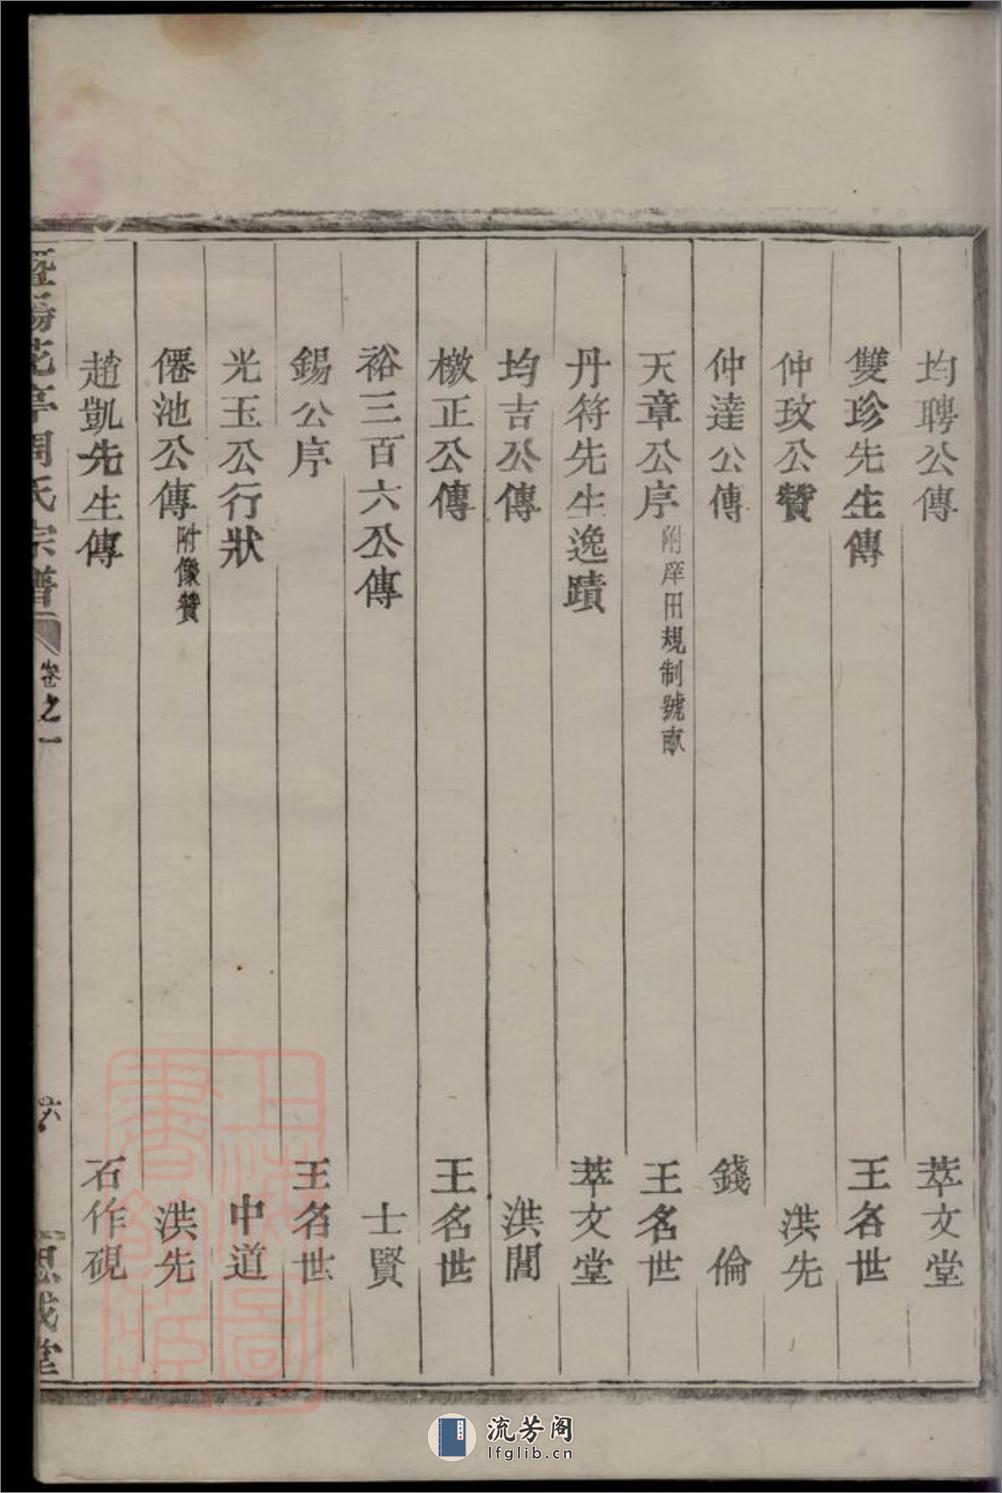 均聘公傳 萃文堂
雙珍先生傳 王名世
仲玟公贊 洪先
仲達公傳 錢倫
天章公序 附庠田規制號畝 王名世
丹符先生逸蹟 萃文堂
均吉公傳 洪閶
檄正公傳 王名世
裕三百六公傳 士賢
錫公序 王名世
光玉公行狀 中道
僊池公傳 附像贊 洪先
趙凱先生傳 石作硯
暨陽花亭周氏宗譜 卷之一 六 思成堂
上海圖書館藏
流芳阁
lfglib.cn